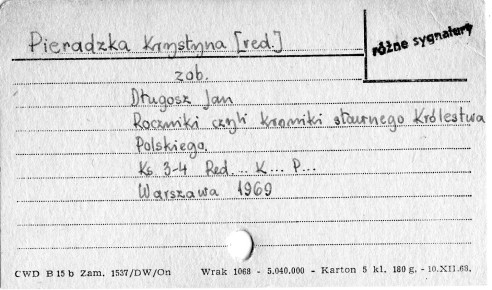 Pieradzka Krystyna [red.]
różne sygnatury
zob.
Długosz Jan
Roczniki czyli kroniki sławnego Królestwa
Polskiego.
Ks 3-4 Red... K... P...
Warszawa 1969
CWD B 15 b Zam. 1537/DW/On Wrak 1068 - 5.040.000 - Karton 5 kl. 180 g. - 10.XII.68.